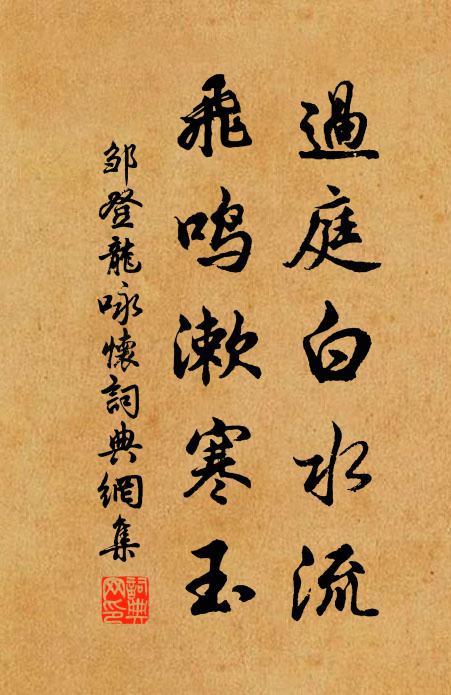 過庭白水流
飛鳴漱寒玉
邹登龍咏懷詞典網集
詞典网印